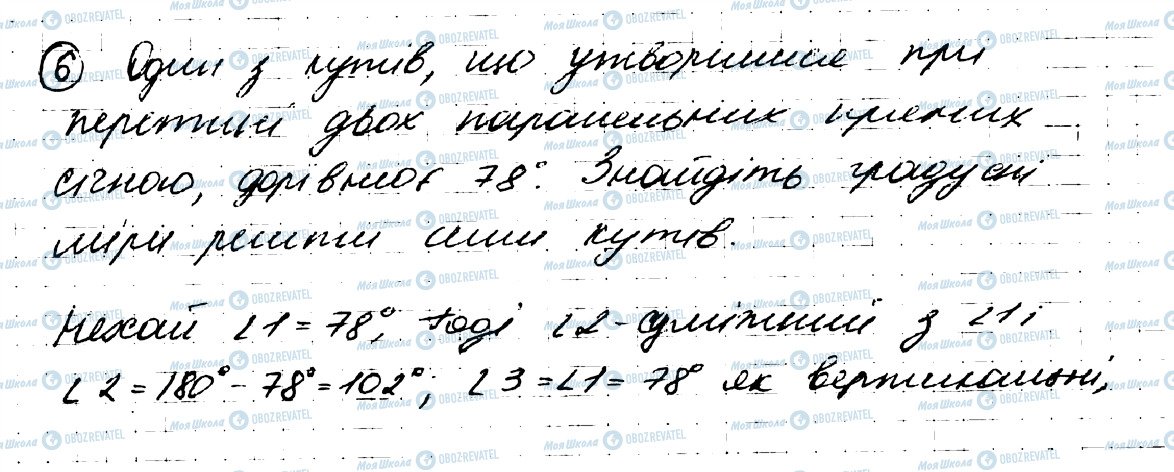 6 Один з кутів, що утворилися при
перетині двох паралельних прямих
січною, дорівнює 78°. Знайдіть градусні
міри решти семи кутів.
Нехай ∠1 = 78°, тоді ∠2 - суміжний з ∠1 і
∠2 = 180° - 78° = 102°; ∠3 = ∠1 = 78° як вертикальні,